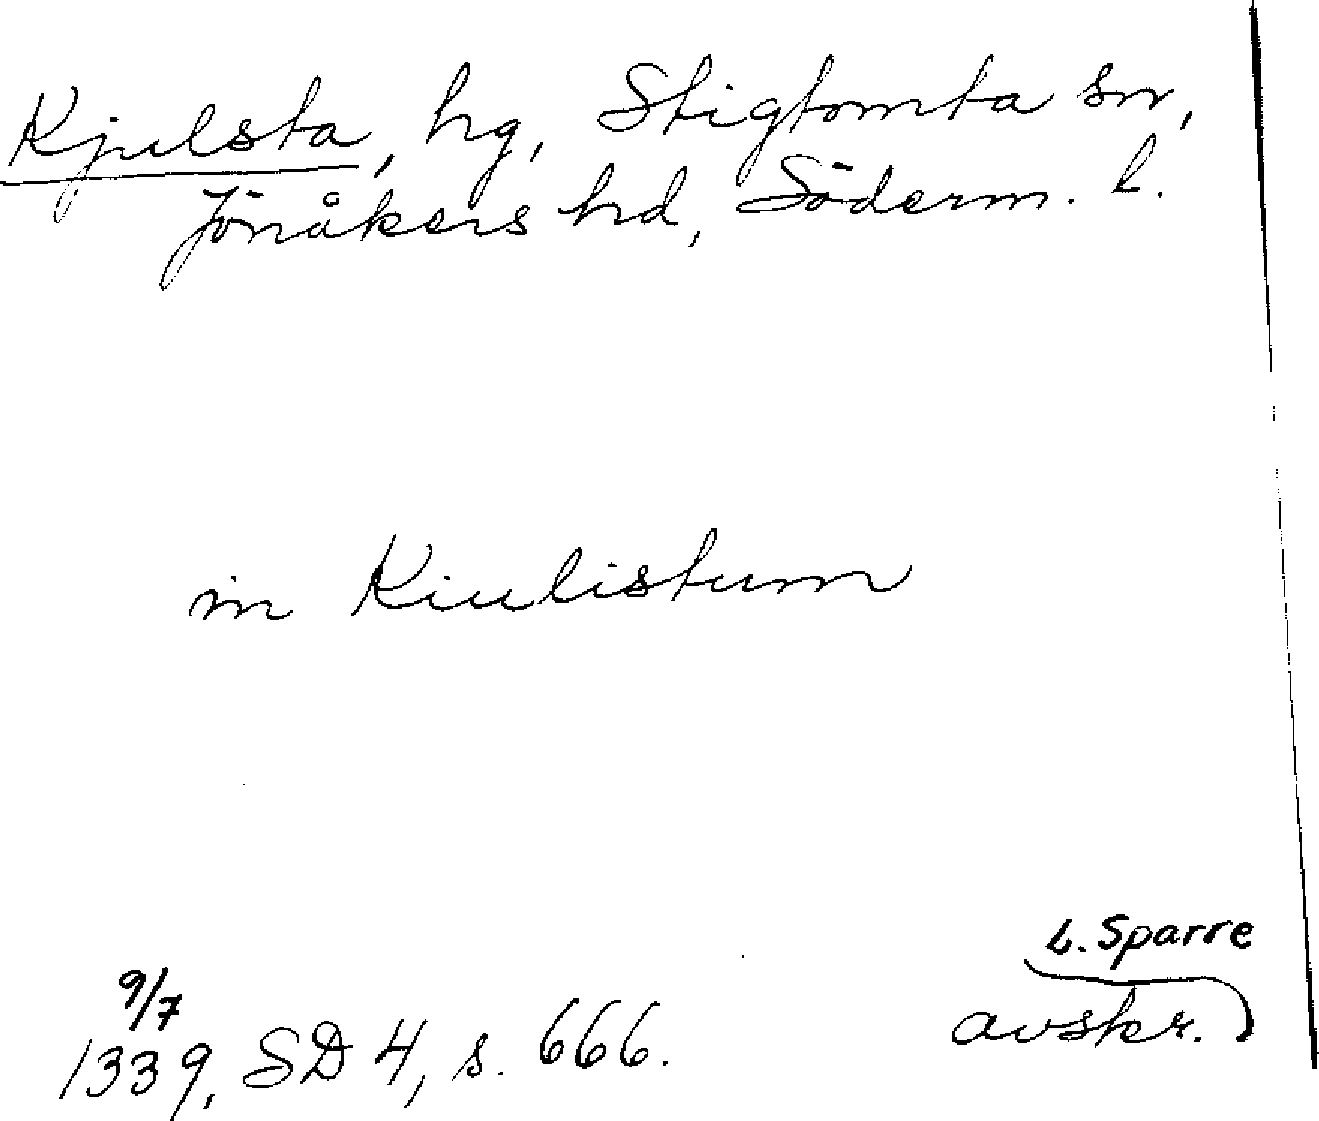 Kjulsta, hg, Stigtomta sn,
Jönåkers hd, Söderm. l.
in Kiulistum
L. Sparre
avskr.
9/7
1339, SD 4, s. 666.